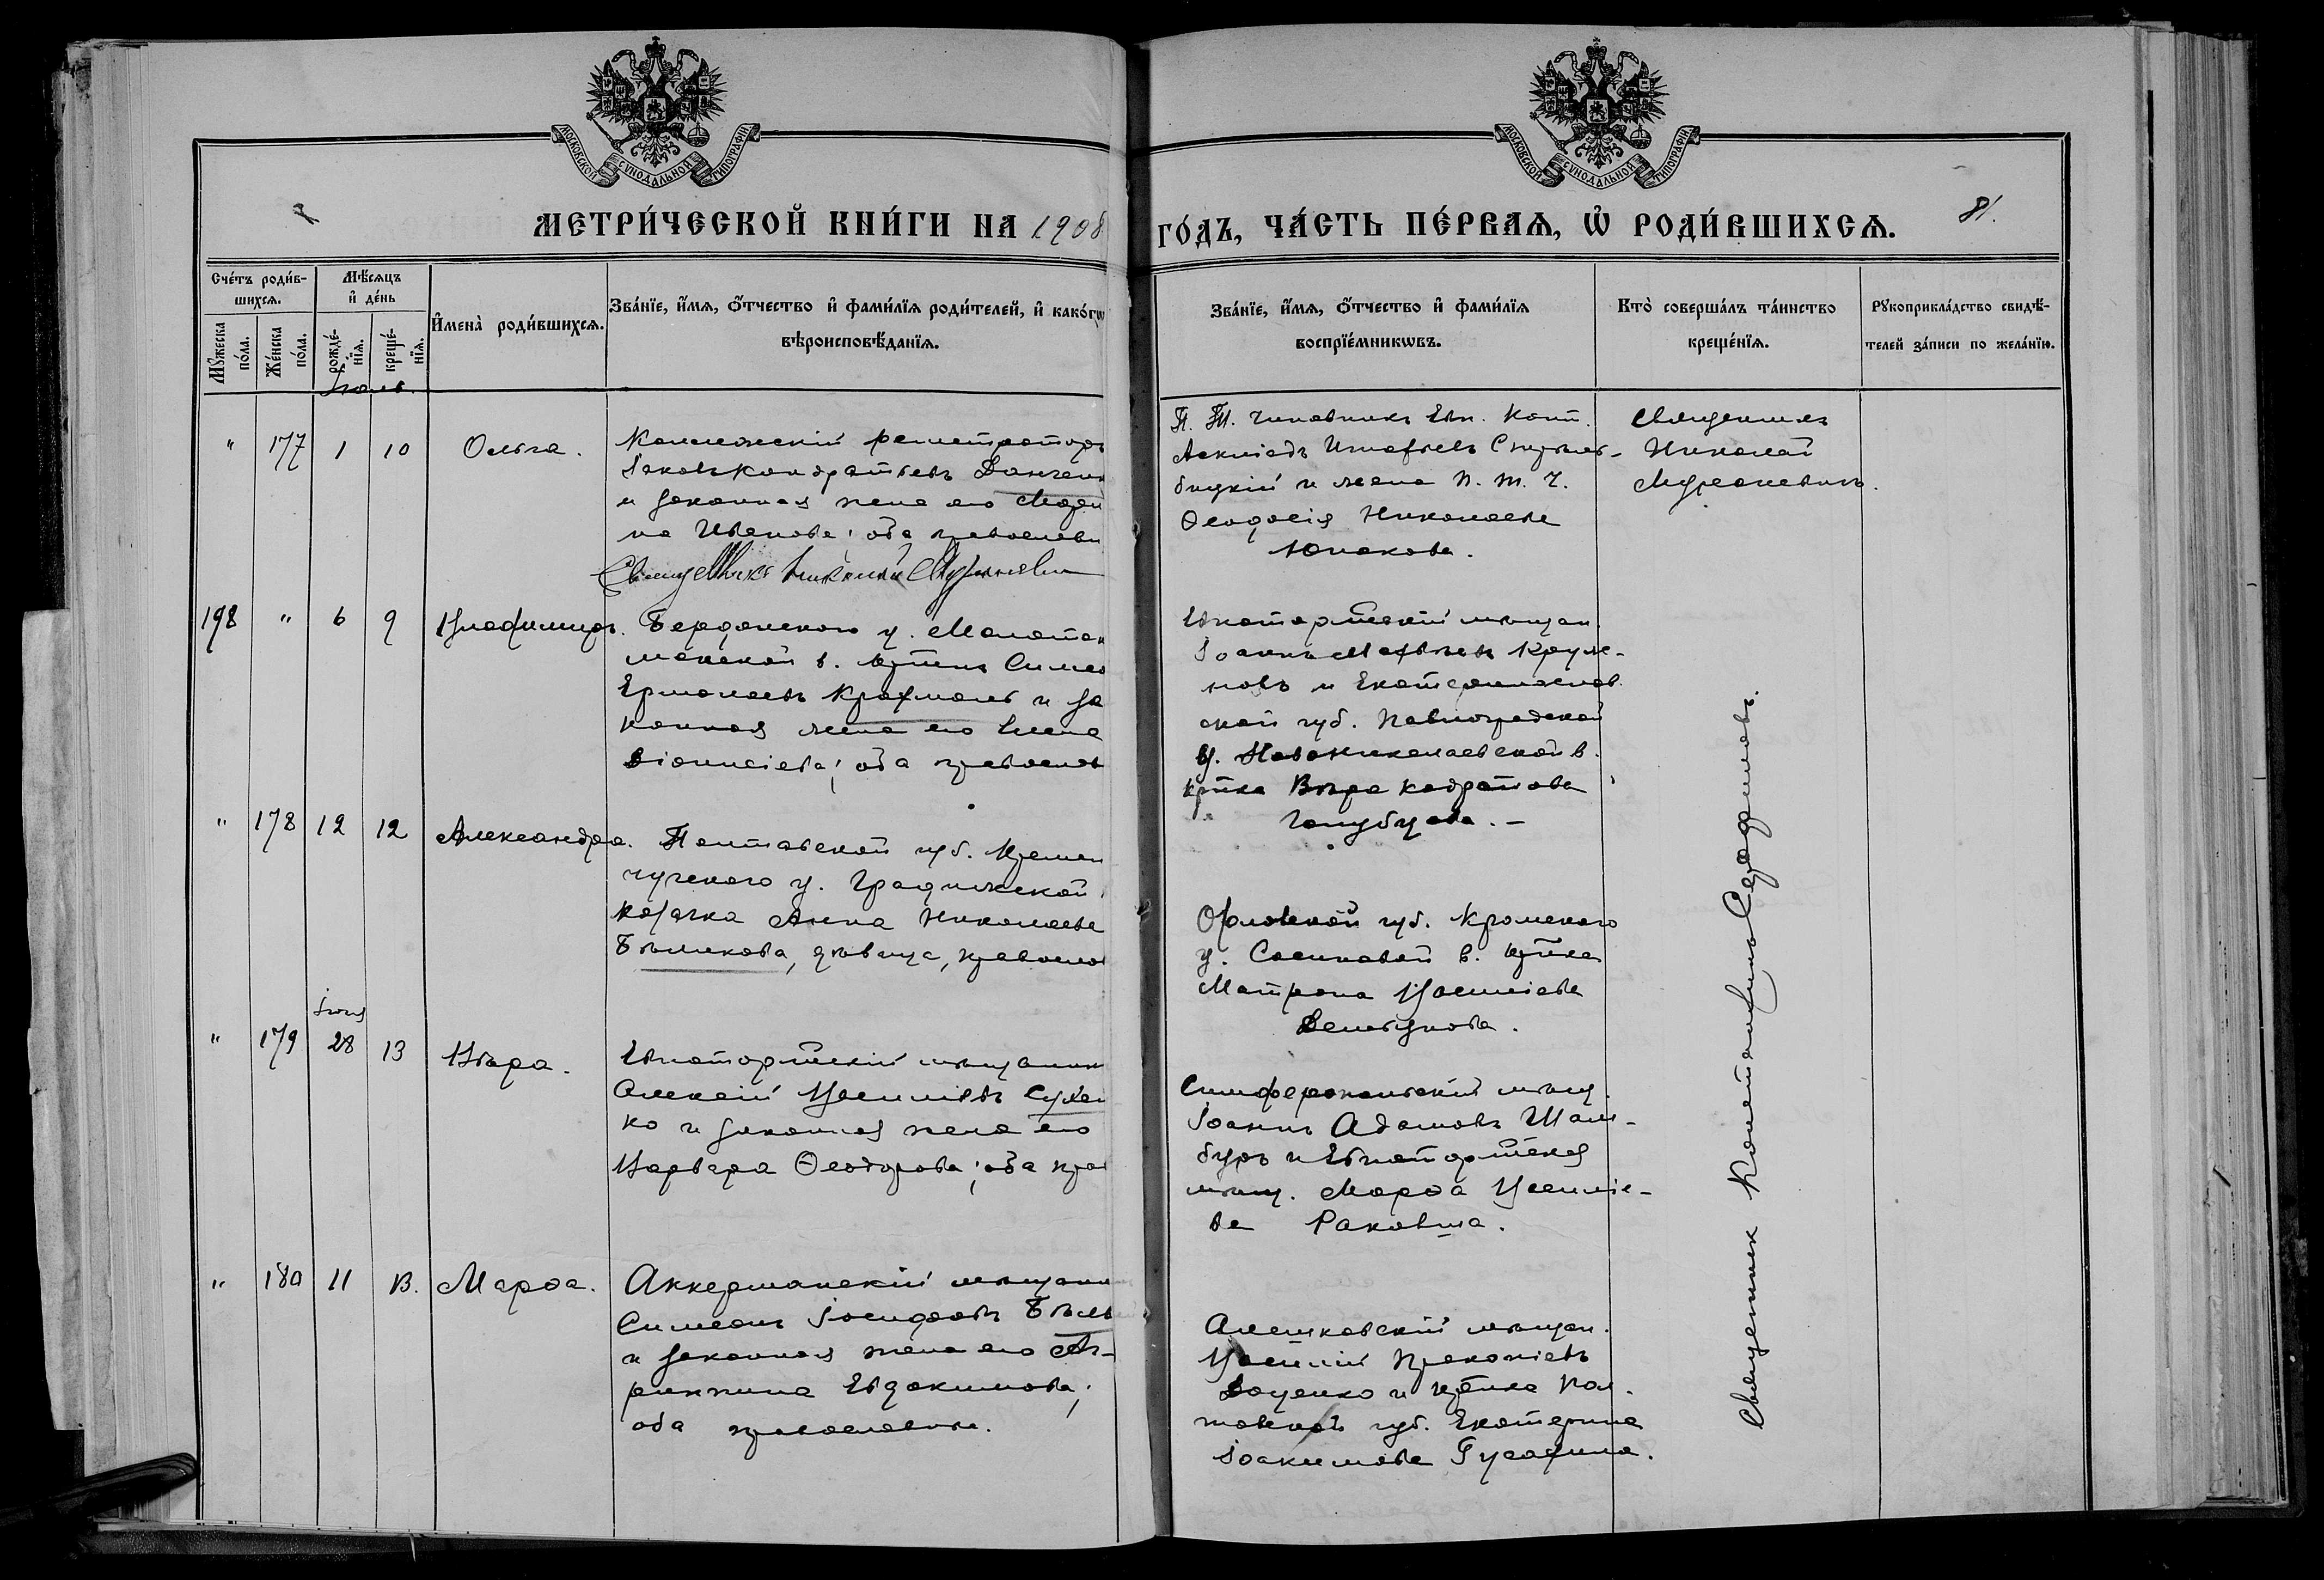 МОСКОВСКОЙ СѴНОДАЛЬНОЙ ТИПОГРАФІИ
МОСКОВСКОЙ СѴНОДАЛЬНОЙ ТИПОГРАФІИ
МЕТРИ́ЧЕСКОЙ КНИ́ГИ НА 1908
ГО́ДЪ, ЧА́СТЬ ПЕ́РВАЯ, Ѡ҆ РОДИ́ВШИХСЯ.
81.
Сче́тъ роди́в-
шихся.
Мꙋ́жеска по́ла.
Же́нска по́ла.
Мѣ́сяцъ
и҆ де́нь
рожде́-
нїя.
креще́-
нїя.
И҆мена̀ роди́вшихся.
Зва́нїе, и҆́мя, ѻ҆́тчество и҆ фами́лїя роди́телей, и҆ како́гѡ
вѣроисповѣ́данїя.
Зва́нїе, и҆́мя, ѻ҆́тчество и҆ фами́лїя
воспрїе́мникѡвъ.
Кто̀ соверша́лъ та́инство
креще́нїя.
Рꙋкоприкла́дство свидѣ́-
телей за́писи по жела́нїю.
Іюль.
" 177 1 10 Ольга.
Коллежскій регистраторъ
Іаковъ Кондратьевъ
и законная жена его Мари
на Иванова; оба православн
Священникъ Николай
П. Т. чиновникъ Евп. Конт.
Аскліадъ
бицкій и жена П. Т. Ч.
Ѳеодосія Николаева
Юнакова.
Священникъ
Николай
198 " 6 9 Владимиръ.
Бердянского у. Молочан
в. крт-нъ Симео
Ермолаевъ и за
конная жена его Елена
Діонисіева; оба православ
Евпаторійскій мѣщан.
Іоаннъ Матвѣевъ Круж-
новъ и Екатеринослав.
ской губ. Павлоградской
у. Новониколаевской в.
кртка Вѣра Кодратова
Голубцова. –
" 178 12 12 Александра.
Полтавской губ. Кремен
чугского у. Градижской
козачка Анна Николаева
Бѣликова, дѣвица, православ
Орловской губ. Кромского
у. в. кртка
Матрона Василіева
.
Іюня
" 179 28 13 Вѣра.
Евпаторійскій мѣщанин
Алексій Василіевъ Сухен
ко и законная жена его
Варвара Ѳеодорова; оба прав
Симферопольскій мѣщ.
Іоаннъ Адамовъ Шам-
буръ и Евпаторійская
мѣщ. Марѳа Василіе-
ва .
" 180 11 13. Марѳа.
Аккерманскій мѣщани
Симеонъ Іосифовъ
и законная жена его Аг-
рипина Евдокимова;
оба православны.
Алешковскій мѣщан.
Василій Прокопіевъ
Доценко и кртка Пол-
тавской губ. Екатерина
Іоакимова .
Священник Константинъ Серафимовъ.